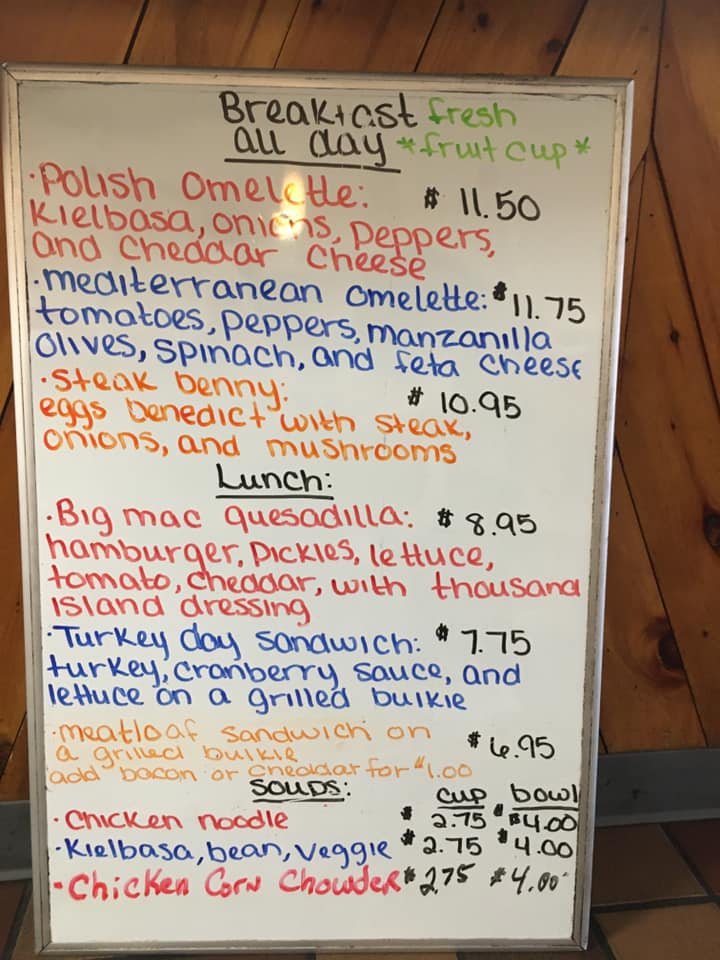 Breakfast fresh
all day *fruit cup*
·Polish Omelette: $ 11.50
Kielbasa, onions, peppers,
and cheddar cheese
·mediterranean omelette: $11.75
tomatoes, peppers, manzanilla
olives, spinach, and feta cheese
·Steak benny: $ 10.95
eggs benedict with steak,
onions, and mushrooms
Lunch:
·Big mac quesadilla: $ 8.95
hamburger, pickles, lettuce,
tomato, cheddar, with thousand
island dressing
·Turkey day sandwich: $ 7.75
turkey, cranberry sauce, and
lettuce on a grilled bulkie
·meatloaf sandwich on $ 6.95
a grilled bulkie
add bacon or cheddar for $1.00
Soups: cup bowl
·Chicken noodle $ 2.75 $ $4.00
·Kielbasa, bean, veggie $ 2.75 $ 4.00
·Chicken Corn Chowder $ 2.75 $ 4.00